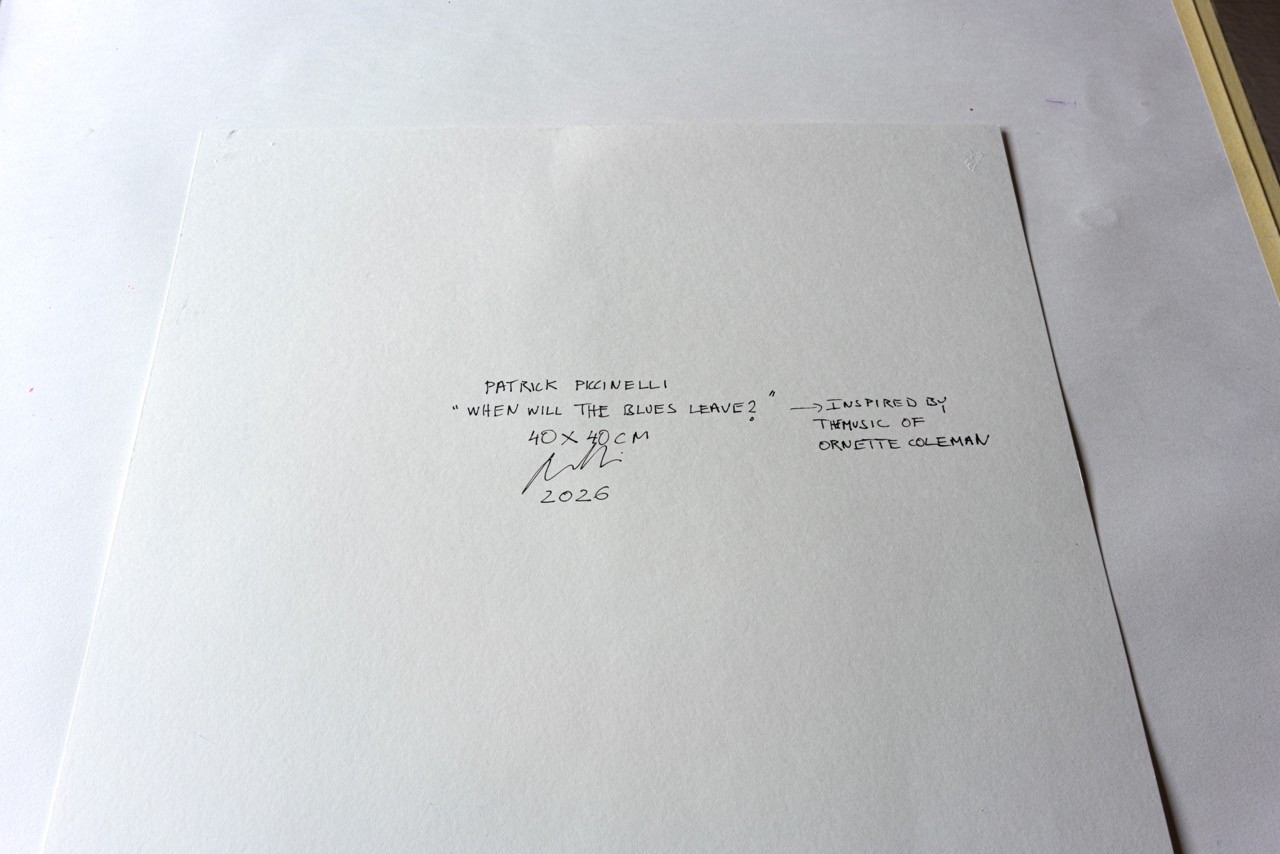 PATRICK PICCINELLI
"WHEN WILL THE BLUES LEAVE?"
40 X 40 CM
2026
→ INSPIRED BY
THE MUSIC OF
ORNETTE COLEMAN